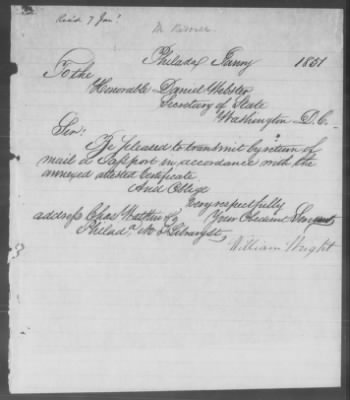 Recd 7 Jany
Philada Jany 1851
To the
Honorable Daniel Webster
Secretary of State
Washington D.C.
Sir,
Be pleased to transmit by return of
mail a Passport in accordance with the
annexed attested Certificate
And Oblige
Very respectfully
address Chas Your Obedient Servant
Philada No
William Wright